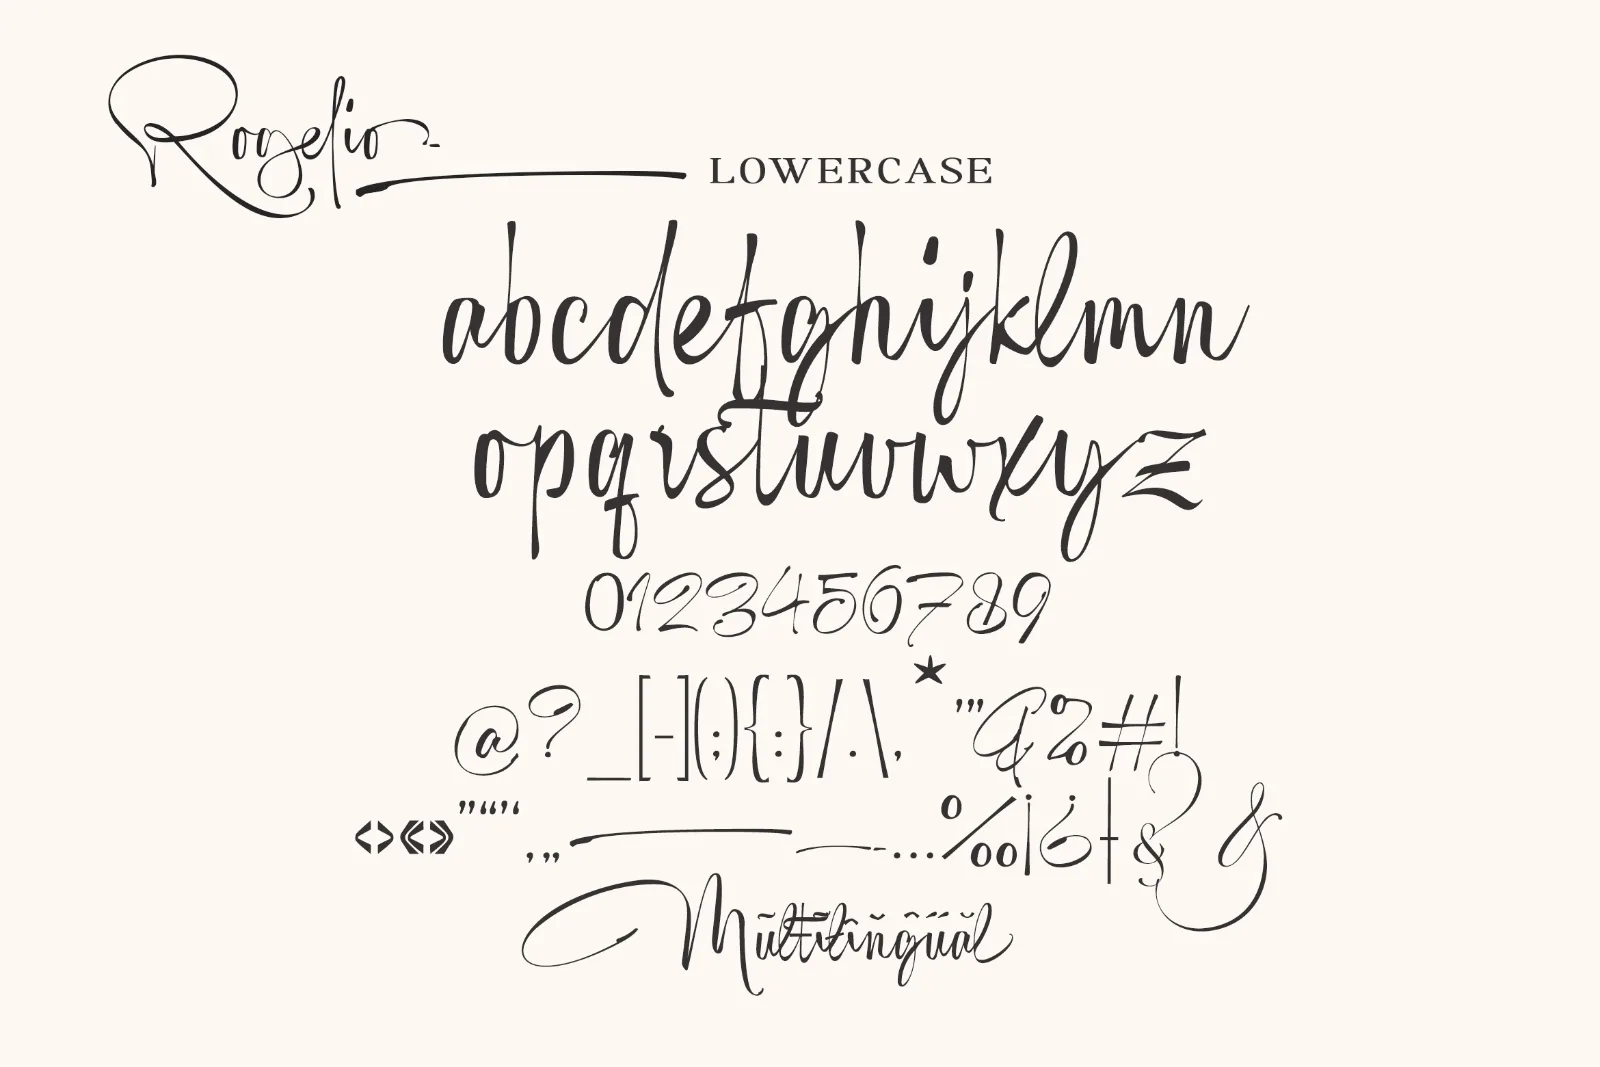 Rogelio
LOWERCASE
abcdefghijklmn
opqrstuvwxyz
0123456789
@?_[-](;){:}/.\,*'"&%#!
‹›«»”“‘’‚„—–-…‰¡¿†§&
Mũltĩlĩňĝűăl